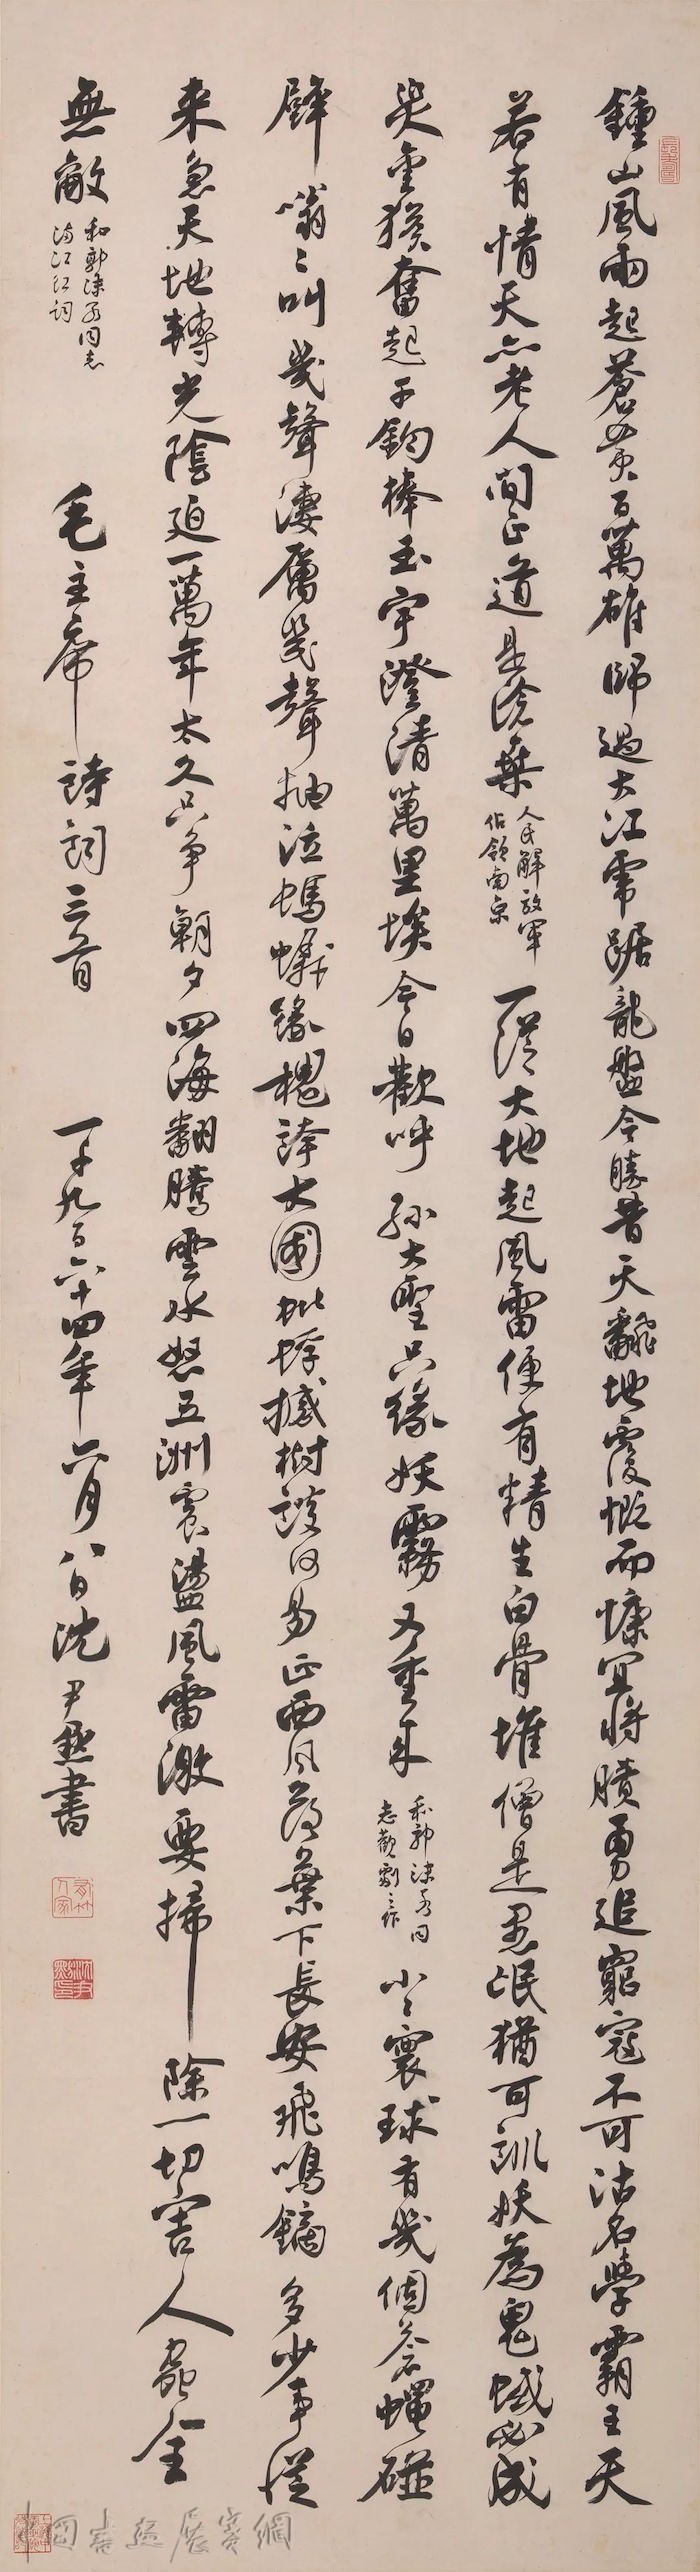 鍾山風雨起蒼黃百萬雄師過大江虎踞龍盤今勝昔天飜地覆慨而慷宜將賸勇追窮寇不可沽名學霸王天
若有情天亦老人間正道是滄桑
人民解放軍
佔領南京
一從大地起風雷便有精生白骨堆僧是愚氓猶可訓妖為鬼蜮必成
災金猴奮起千鈞棒玉宇澄清萬里埃今日歡呼孫大聖只緣妖霧又重來
和郭沫若同
志觀劇之作
小〻寰球有幾個蒼蠅碰
壁嗡〻叫幾聲淒厲幾聲抽泣螞蟻緣槐誇大國蚍蜉撼樹談何易正西風落葉下長安飛鳴鏑多少事從
来急天地轉光陰迫一萬年太久只争朝夕四海翻騰雲水怒五洲震盪風雷激要掃除一切害人蟲全
無敵
和郭沫若同志
滿江紅詞
毛主席詩詞三首
一千九百六十四年六月八日沈尹默書
有竹人家
沈尹默印
中國書法展賽網